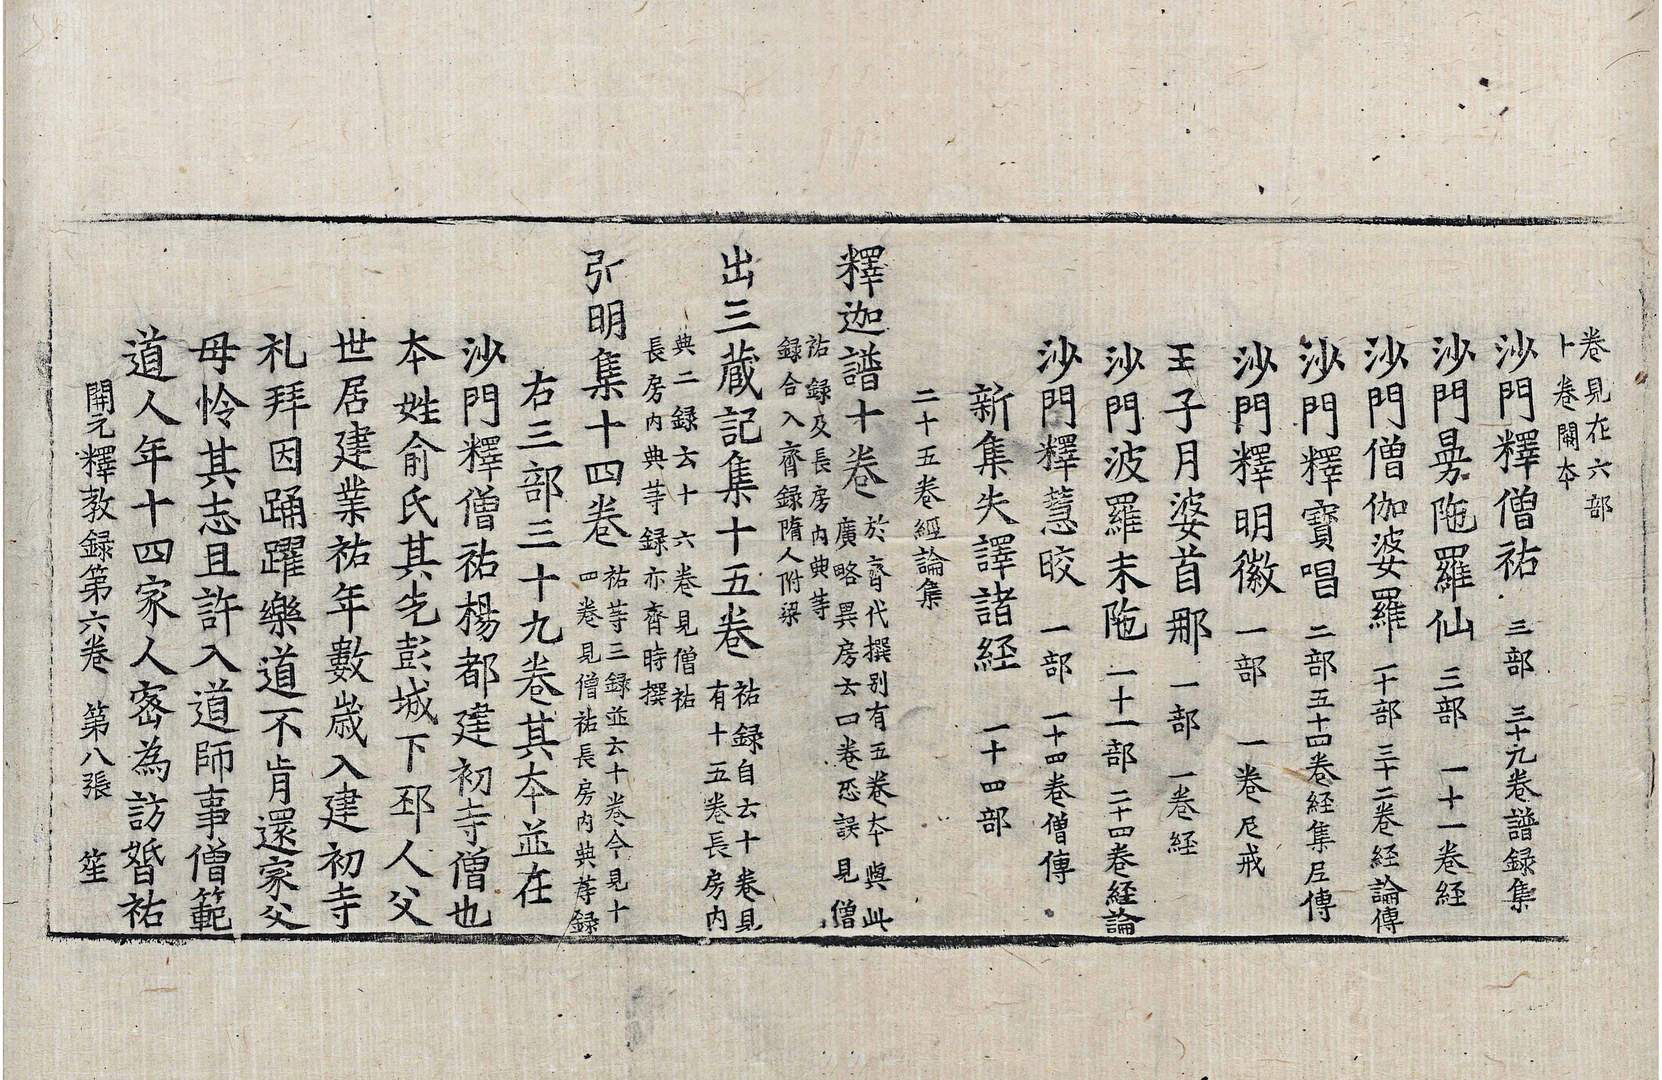 卷見在六部
卜卷闕本
沙門釋僧祐三部三十九卷譜録集
沙門曼陁羅仙三部一十一卷経
沙門僧伽婆羅一十部三十二卷経論傳
沙門釋寶唱二部五十四卷経集尼傳
沙門釋明徽一部一卷尼戒
王子月婆首那一部一卷経
沙門波羅末陁一十一部二十四卷経論
沙門釋慧皎一部一十四卷僧傳
新集失譯諸経一十四部
二十五卷経論集
釋迦譜十卷
於齊代撰别有五卷本與此
廣略異房云四卷恐誤見僧
祐録及長房内典等
録合入齊録隋人附梁
出三蔵記集十五卷
祐録自云十卷見
有十五卷長房内
典二録云十六卷見僧祐
長房内典等録亦齊時撰
弘明集十四卷
祐等三録並云十卷今見十
四卷見僧祐長房内典等録
右三部三十九卷其本並在
沙門釋僧祐楊都建初寺僧也
本姓俞氏其先彭城下邳人父
世居建業祐年數歳入建初寺
礼拜因踊躍樂道不肯還家父
母怜其志且許入道師事僧範
道人年十四家人密為訪婚祐
開元釋教録第六卷 第八張 笙